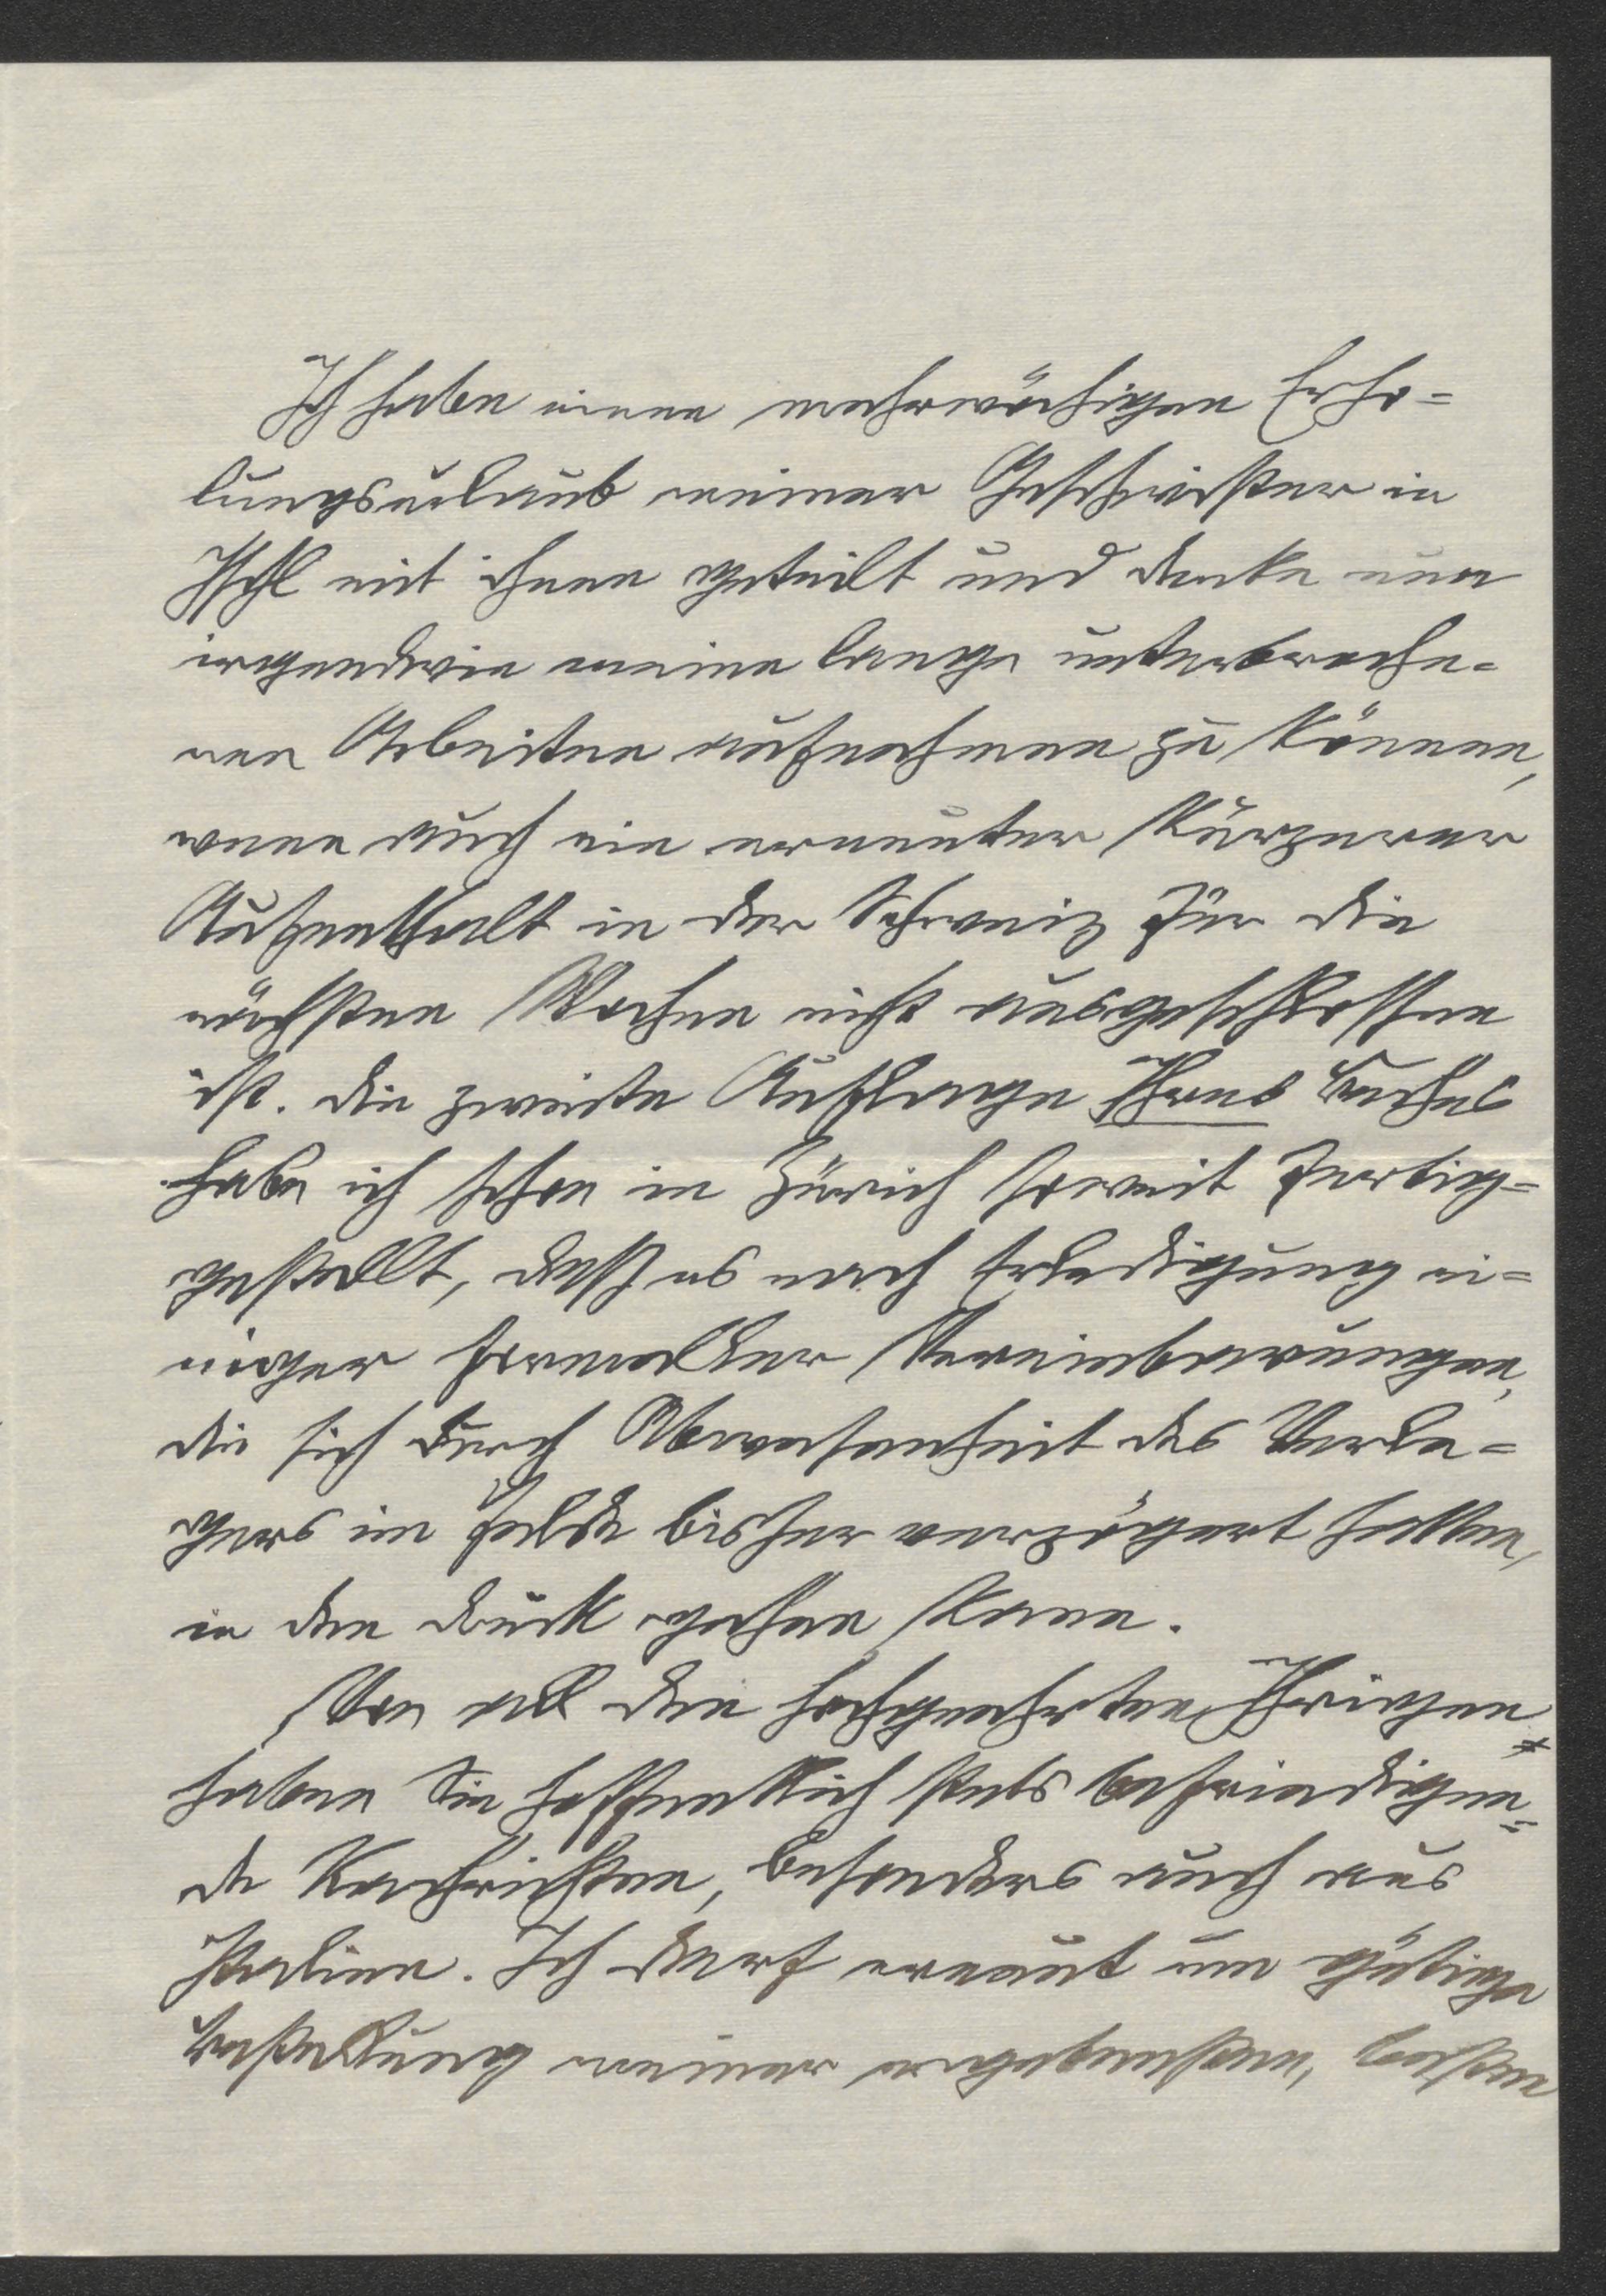 Ich habe einen mehrwöchigen Erho-
lungsurlaub meiner Geschwister in
Ischl mit ihnen geteilt und denke nun
irgendwie meine lange unterbroche-
nen Arbeiten aufnehmen zu können,
wenn auch ein erneuter kürzerer
Aufenthalt in der Schweiz für die
nächsten Wochen nicht ausgeschlossen
ist. Die zweite Auflage Ihres Buches
habe ich schon in Zürich soweit fertig-
gestellt, dass es nach Erledigung ei-
niger formaler Vereinbarungen,
die sich durch Abwesenheit des Verle-
gers im Felde bisher verzögert hatten,
in den Druck gehen kann.
Von all den hochgeehrten Ihrigen
haben Sie hoffentlich stets befriedigen-
de Nachrichten, besonders auch aus
Italien. Ich darf erneut um gütige
Bestellung meiner ergebensten, besten